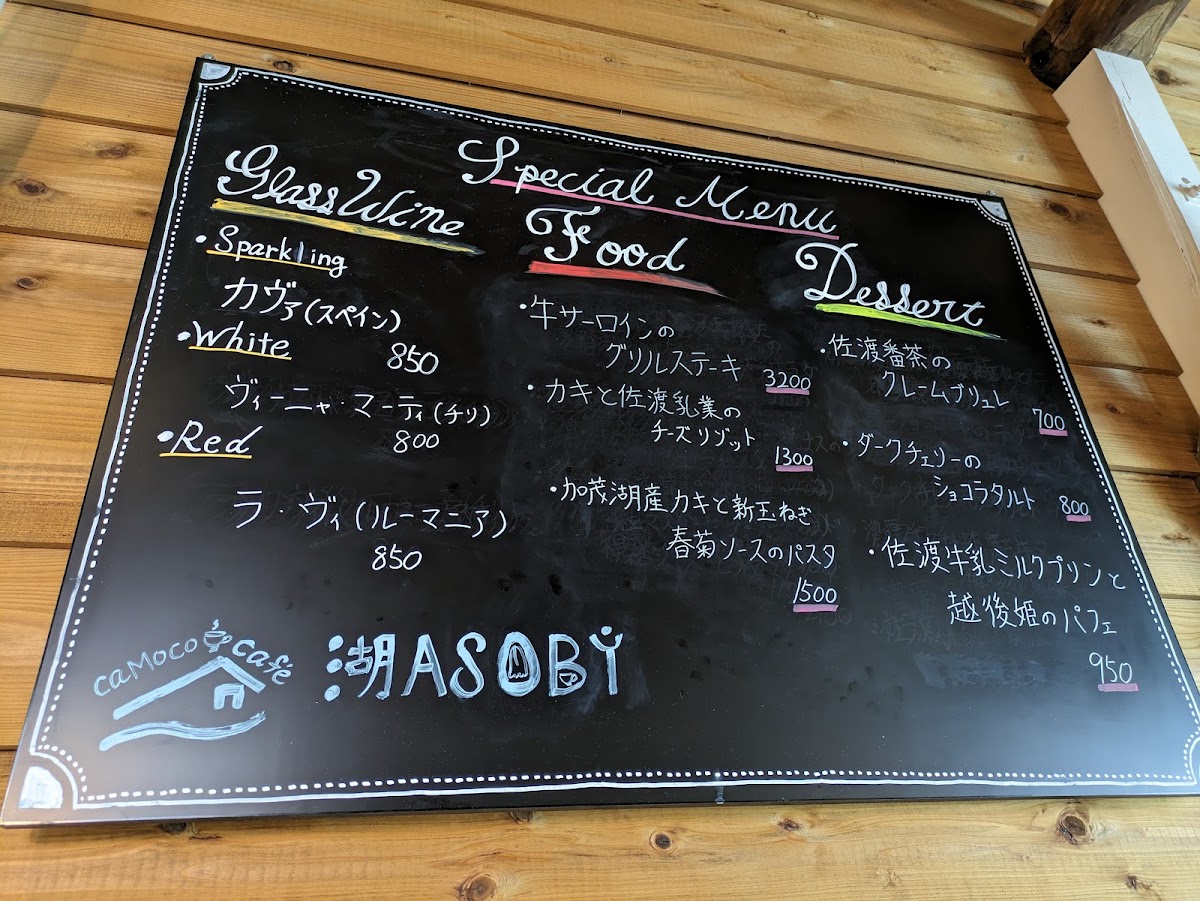 Special Menu
Glass Wine
・Sparkling
カヴァ(スペイン)
850
・White
ヴィーニャ・マーティ(チリ)
800
・Red
ラ・ヴィ(ルーマニア)
850
Food
・牛サーロインの
グリルステーキ 3200
・カキと佐渡乳業の
チーズリゾット 1300
・加茂湖産カキと新玉ねぎ
春菊ソースのパスタ
1500
Dessert
・佐渡番茶の
クレームブリュレ
700
・ダークチェリーの
ショコラタルト 800
・佐渡牛乳ミルクプリンと
越後姫のパフェ
950
caMoco cafe
湖ASOBi